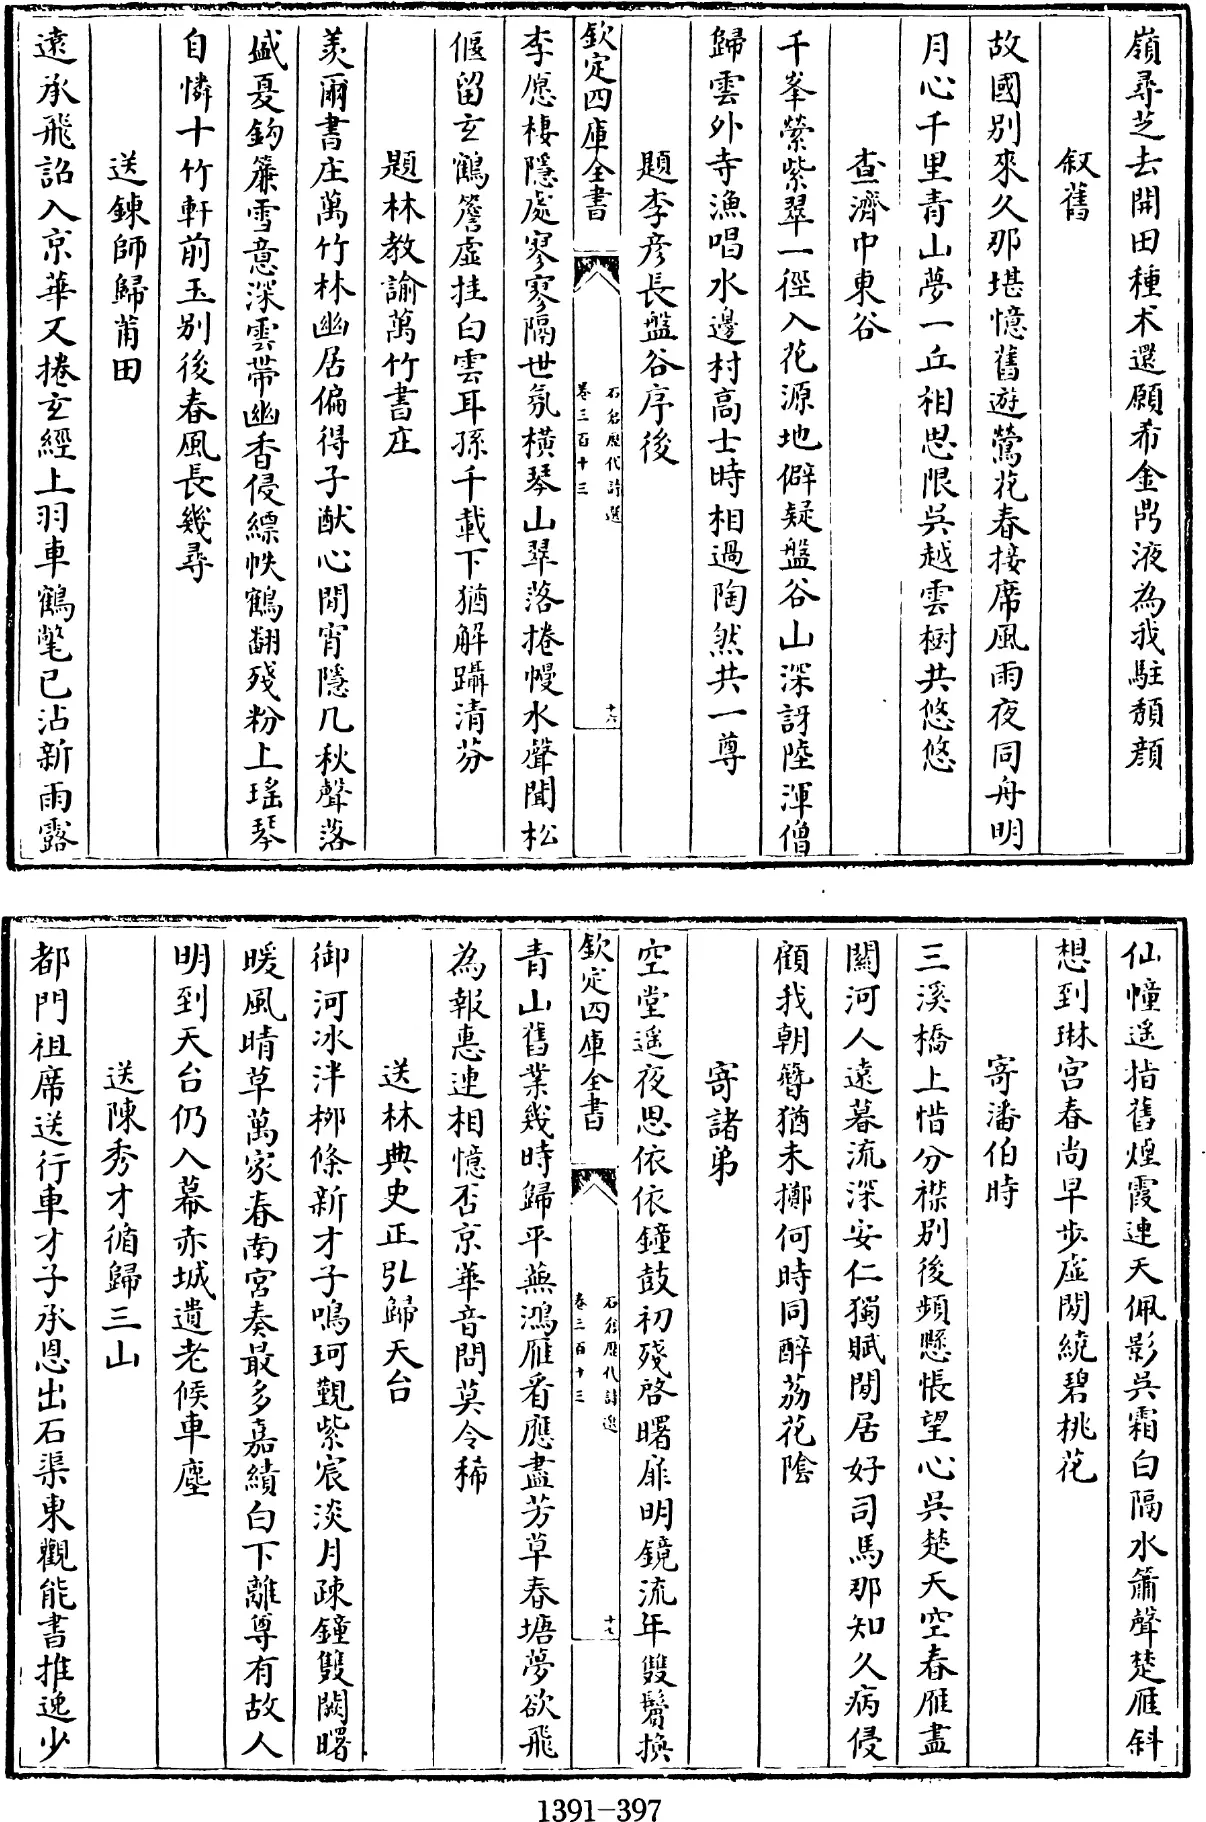 嶺尋芝去開田種术還願希金鼎液為我駐頽顔
叙舊
故國别來久那堪憶舊遊鶯花春接席風雨夜同舟明
月心千里青山夢一丘相思限吳越雲樹共悠悠
查濟巾東谷
千峯縈紫翠一徑入花源地僻疑盤谷山深訝陸渾僧
歸雲外寺漁唱水邊村高士時相過陶然共一尊
題李彦長盤谷序後
欽定四庫全書
石倉歷代詩選
卷三百十三
十六
李愿棲隱處寥寥隔世氛横琴山翠落捲幔水聲聞松
偃留玄鶴簷虛挂白雲耳孫千載下猶解躡清芬
題林教諭萬竹書庄
羙爾書庄萬竹林幽居偏得子猷心閒宵隱几秋聲落
盛夏鈎簾雪意深雲帶幽香侵縹帙鶴翻殘粉上瑤琴
自憐十竹軒前玉别後春風長幾尋
送鍊師歸莆田
遠承飛詔入京華又捲玄經上羽車鶴氅已沾新雨露
仙幢遥指舊煙霞連天佩影吳霜白隔水簫聲楚雁斜
想到琳宮春尚早步虛閒繞碧桃花
寄潘伯時
三溪橋上惜分襟别後頻懸悵望心吳楚天空春雁盡
關河人遠暮流深安仁獨賦閒居好司馬那知久病侵
顧我朝簪猶未擲何時同醉荔花陰
寄諸弟
空堂遥夜思依依鐘鼓初殘啓曙扉明鏡流年雙鬢換
欽定四庫全書
石倉歷代詩選
卷三百十三
十七
青山舊業幾時歸平蕪鴻雁看應盡芳草春塘夢欲飛
為報惠連相憶否京華音問莫令稀
送林典史正弘歸天台
御河冰泮柳條新才子鳴珂覲紫宸淡月疎鐘雙闕曙
暖風晴草萬家春南宮奏最多嘉績白下離尊有故人
明到天台仍入幕赤城遺老候車塵
送陳秀才循歸三山
都門祖席送行車才子承恩出石渠東觀能書推逸少
1391-397